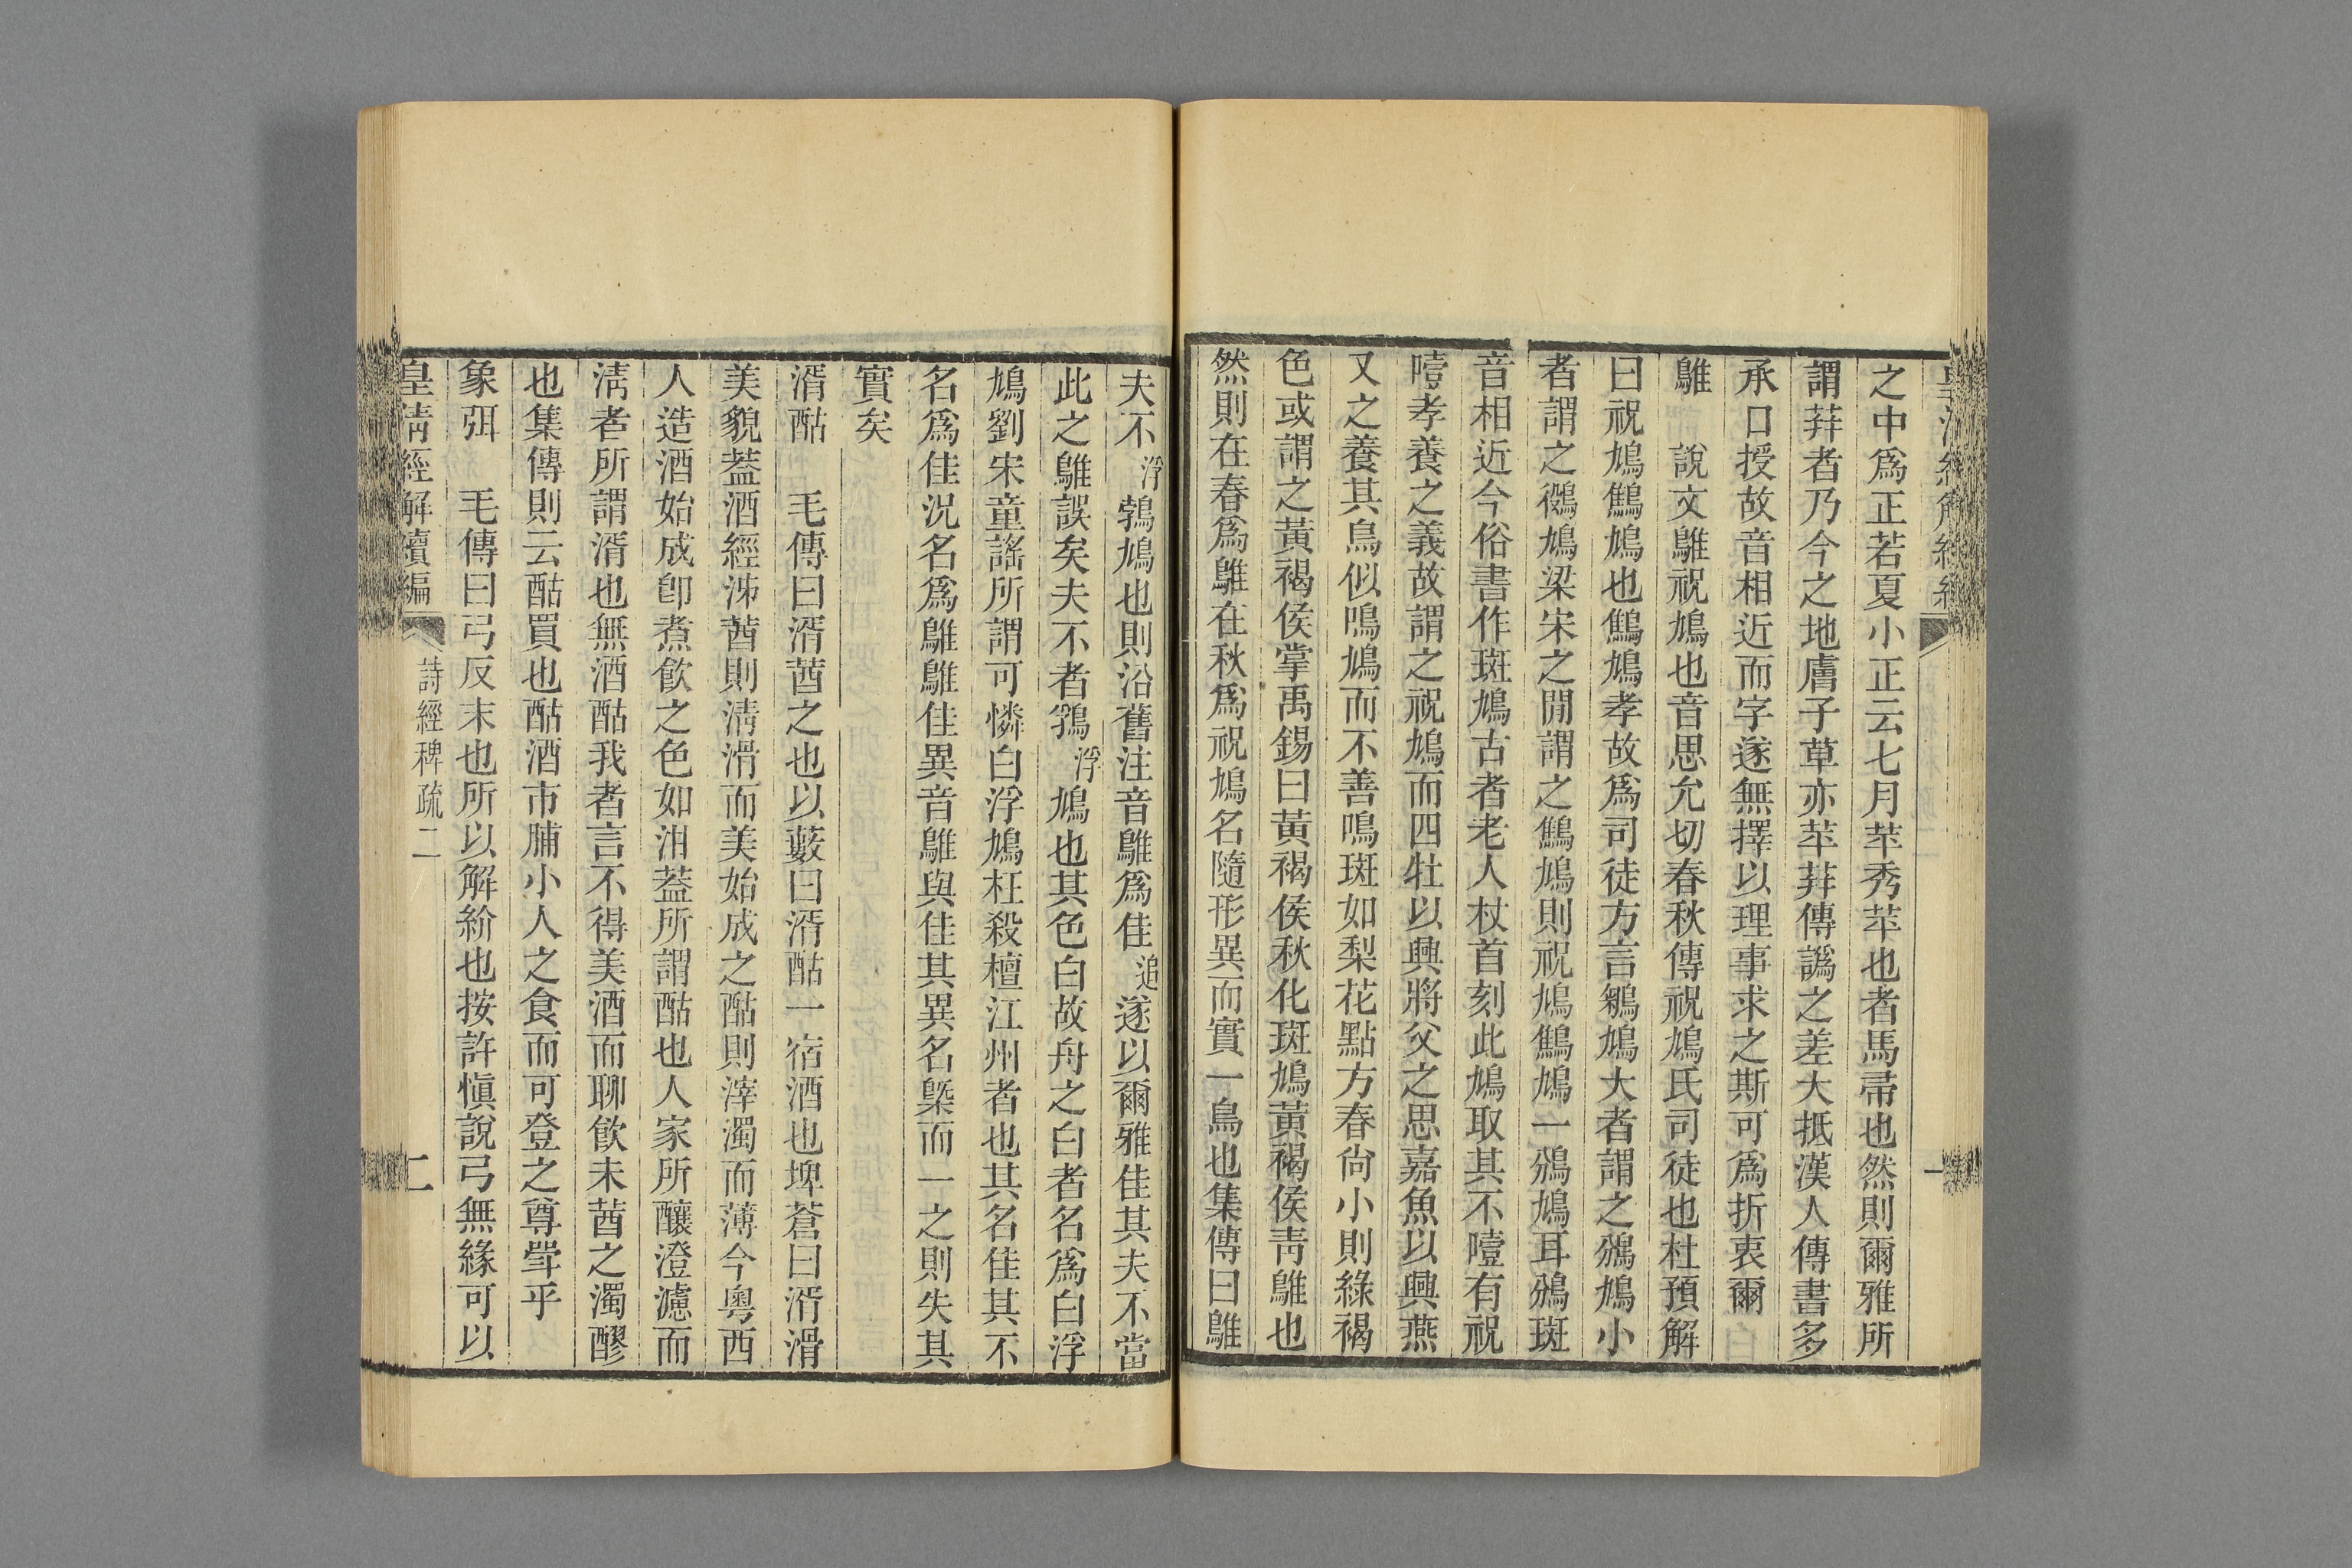 之中爲正若夏小正云七月苹秀苹也者馬帚也然則爾雅所
謂荓者乃今之地膚子草亦苹荓傳譌之差大抵漢人傳書多
承口授故音相近而字遂無擇以理事求之斯可爲折衷爾
鵻　說文鵻祝鳩也音思允切春秋傳祝鳩氏司徒也杜預解
曰祝鳩鷦鳩也鷦鳩孝故爲司徒方言鶵鳩大者謂之鳻鳩小
者謂之鵽鳩梁宋之閒謂之鷦鳩則祝鳩鷦鳩一鳻鳩耳鳻斑
音相近今俗書作斑鳩古者老人杖首刻此鳩取其不噎有祝
噎孝養之義故謂之祝鳩而四牡以興將父之思嘉魚以興燕
又之養其鳥似鳴鳩而不善鳴斑如梨花點方春尙小則綠褐
色或謂之黃褐侯掌禹錫曰黃褐侯秋化斑鳩黃褐侯靑鵻也
然則在春爲鵻在秋爲祝鳩名隨形異而實一鳥也集傳曰鵻
夫不浮鵓鳩也則沿舊注音鵻爲隹追遂以爾雅隹其夫不當
此之鵻誤矣夫不者鶉浮鳩也其色白故舟之白者名爲白浮
鳩劉宋童謠所謂可憐白浮鳩枉殺檀江州者也其名隹其不
名爲隹況名爲鵻鵻隹異音鵻與隹其異名槩而一之則失其
實矣
湑酤　毛傳曰湑莤之也以藪曰湑酤一宿酒也埤蒼曰湑滑
美貌葢酒經泲莤則淸滑而美始成之酤則滓濁而薄今粵西
人造酒始成卽煮飲之色如泔葢所謂酤也人家所釀澄濾而
淸者所謂湑也無酒酤我者言不得美酒而聊飮未莤之濁醪
也集傳則云酤買也酤酒市脯小人之食而可登之尊斝乎
象弭　毛傳曰弓反末也所以解紛也按許愼說弓無緣可以
皇淸經解續編　詩經稗疏二　二